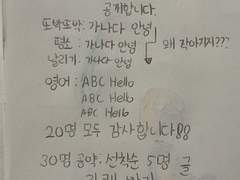 공개합니다.
또박또박: 가나다 안녕
평소 : 가나다 안녕
왜 작아지지???
날리기: 가나다 안녕
영어: ABC Hello
ABC Hello
ABC Hello
20명 모두 감사합니다!!
30명 공약: 선착순 5명 글